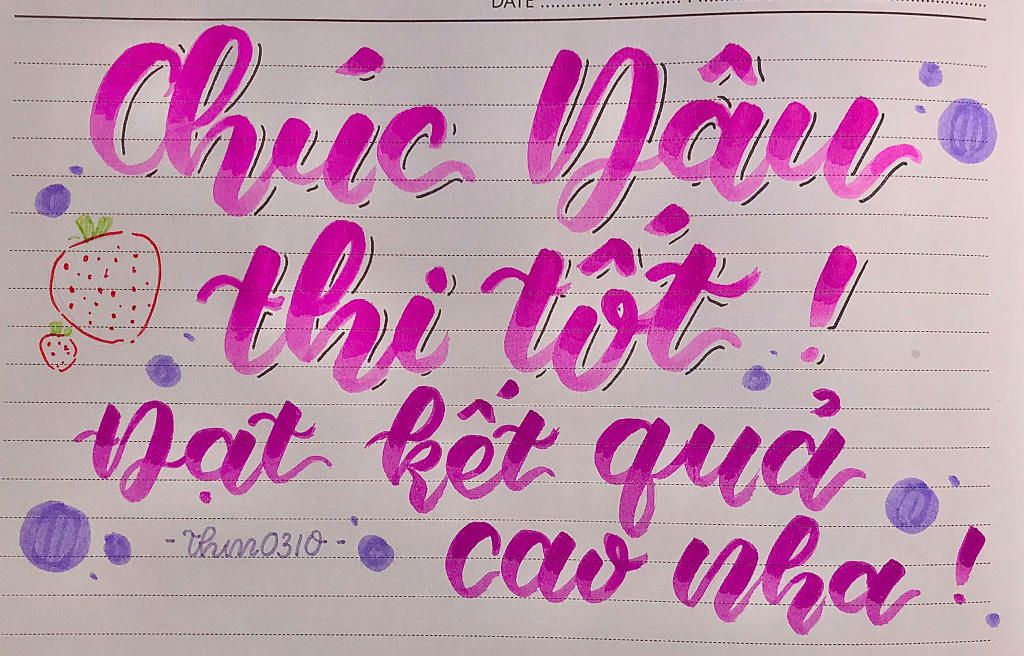 DATE
Chúc Dâu
thi tốt !
Đạt kết quả
cao nha !
- thun0310 -